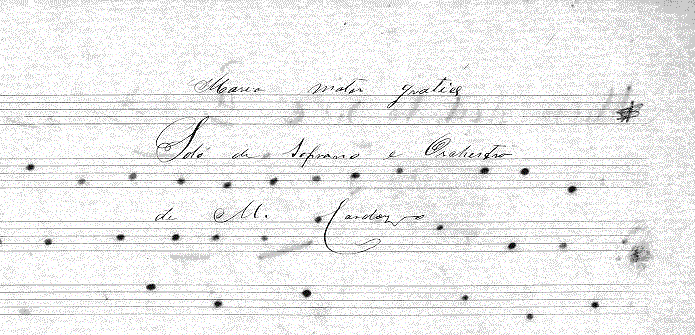 Maria mater gratiæ
Solo de Soprano e Orchestra
de M. Cardozo